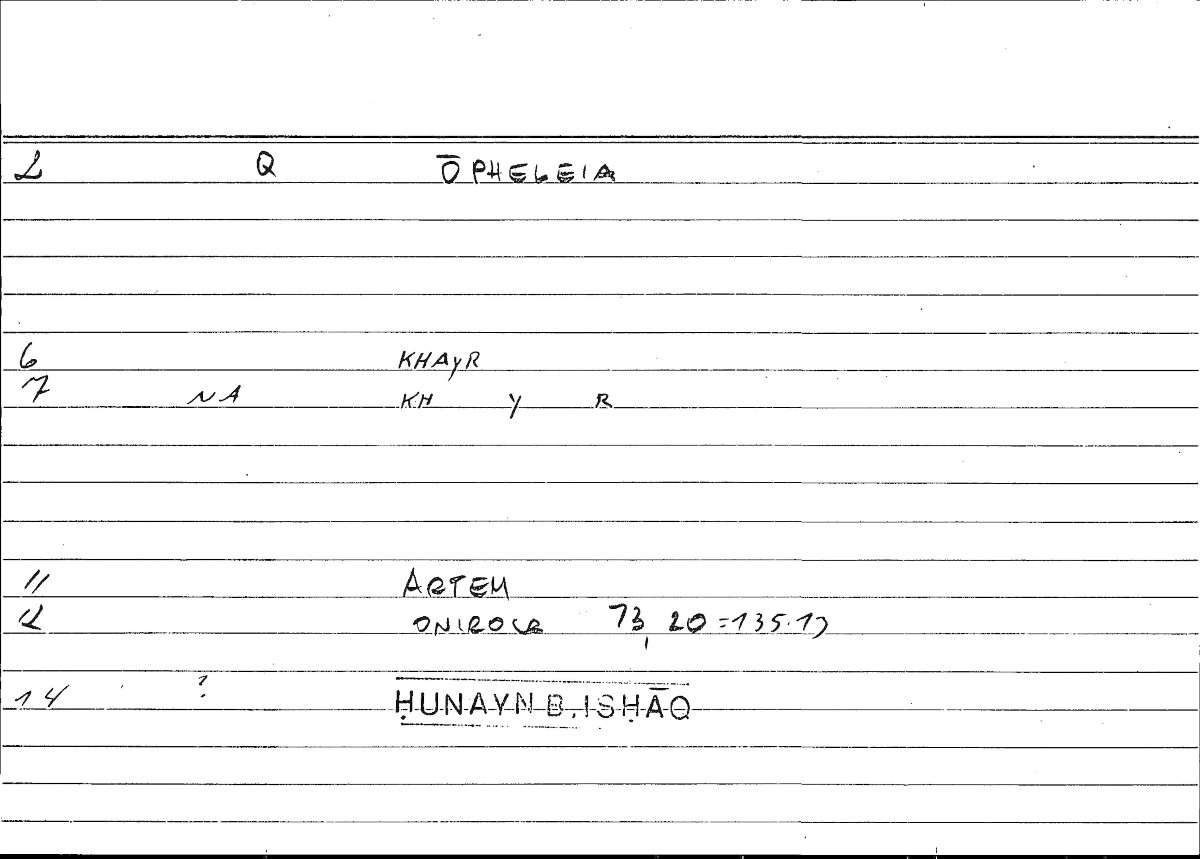 2 Q ŌPHELEIA
6 KHAYR
7 NA KH Y R
11 ARTEM
12 ONIROCR 73, 20 = 135.13
14 ? ḤUNAYN B. ISḤĀQ